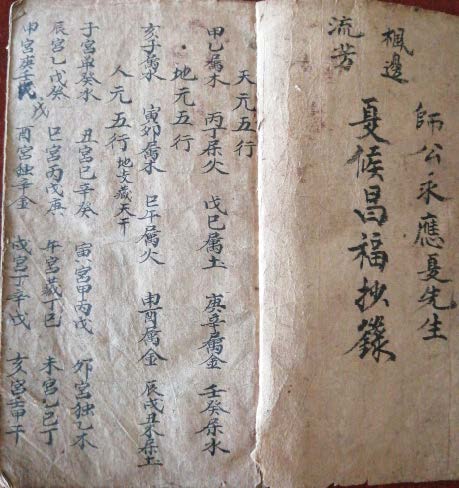 師公永應夏先生
楓邊
夏候昌福抄錄
流芳
天元五行
甲乙属木 丙丁属火 戊巳属土 庚辛属金 壬癸属水
地元五行
亥子属水 寅卯属木 巳午属火 申酉属金 辰戌丑未属土
人元五行 地支藏天干
子宮单癸水 丑宮巳辛癸 寅宮甲丙戊 卯宮独乙木
辰宮乙戊癸 巳宮丙戊庚 午宮藏丁巳 未宮乙己丁
申宮庚壬戊 酉宮独辛金 戌宮丁辛戊 亥宮壬甲干